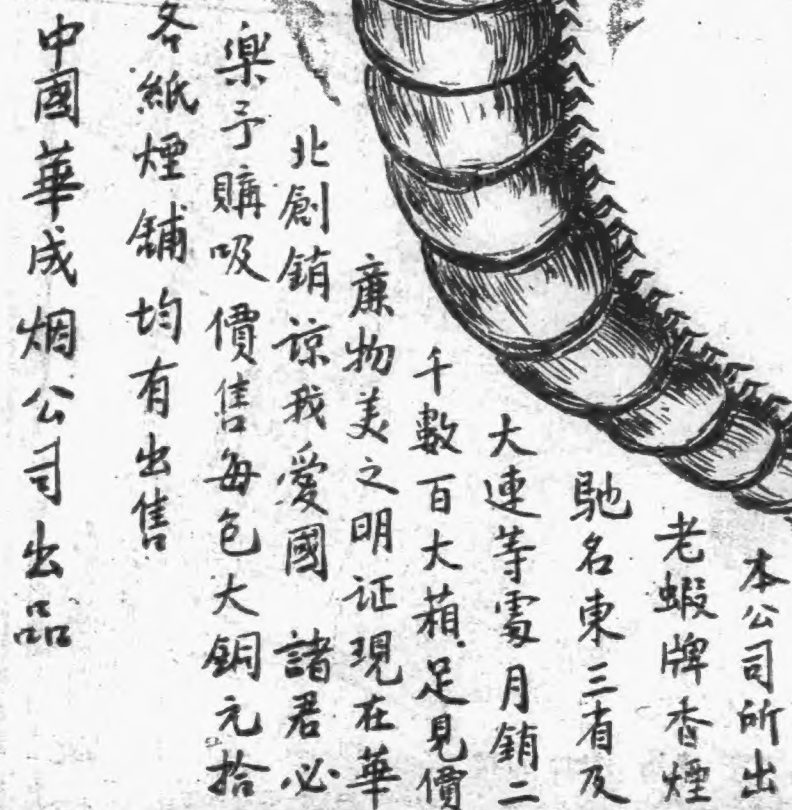 本公司所出
老蝦牌香煙
馳名東三省及
大連等處月銷二
千數百大箱足見價
廉物美之明证現在華
北創銷諒我愛國 諸君必
樂予購吸價售每包大銅元拾
各紙煙舖均有出售
中國華成烟公司出品